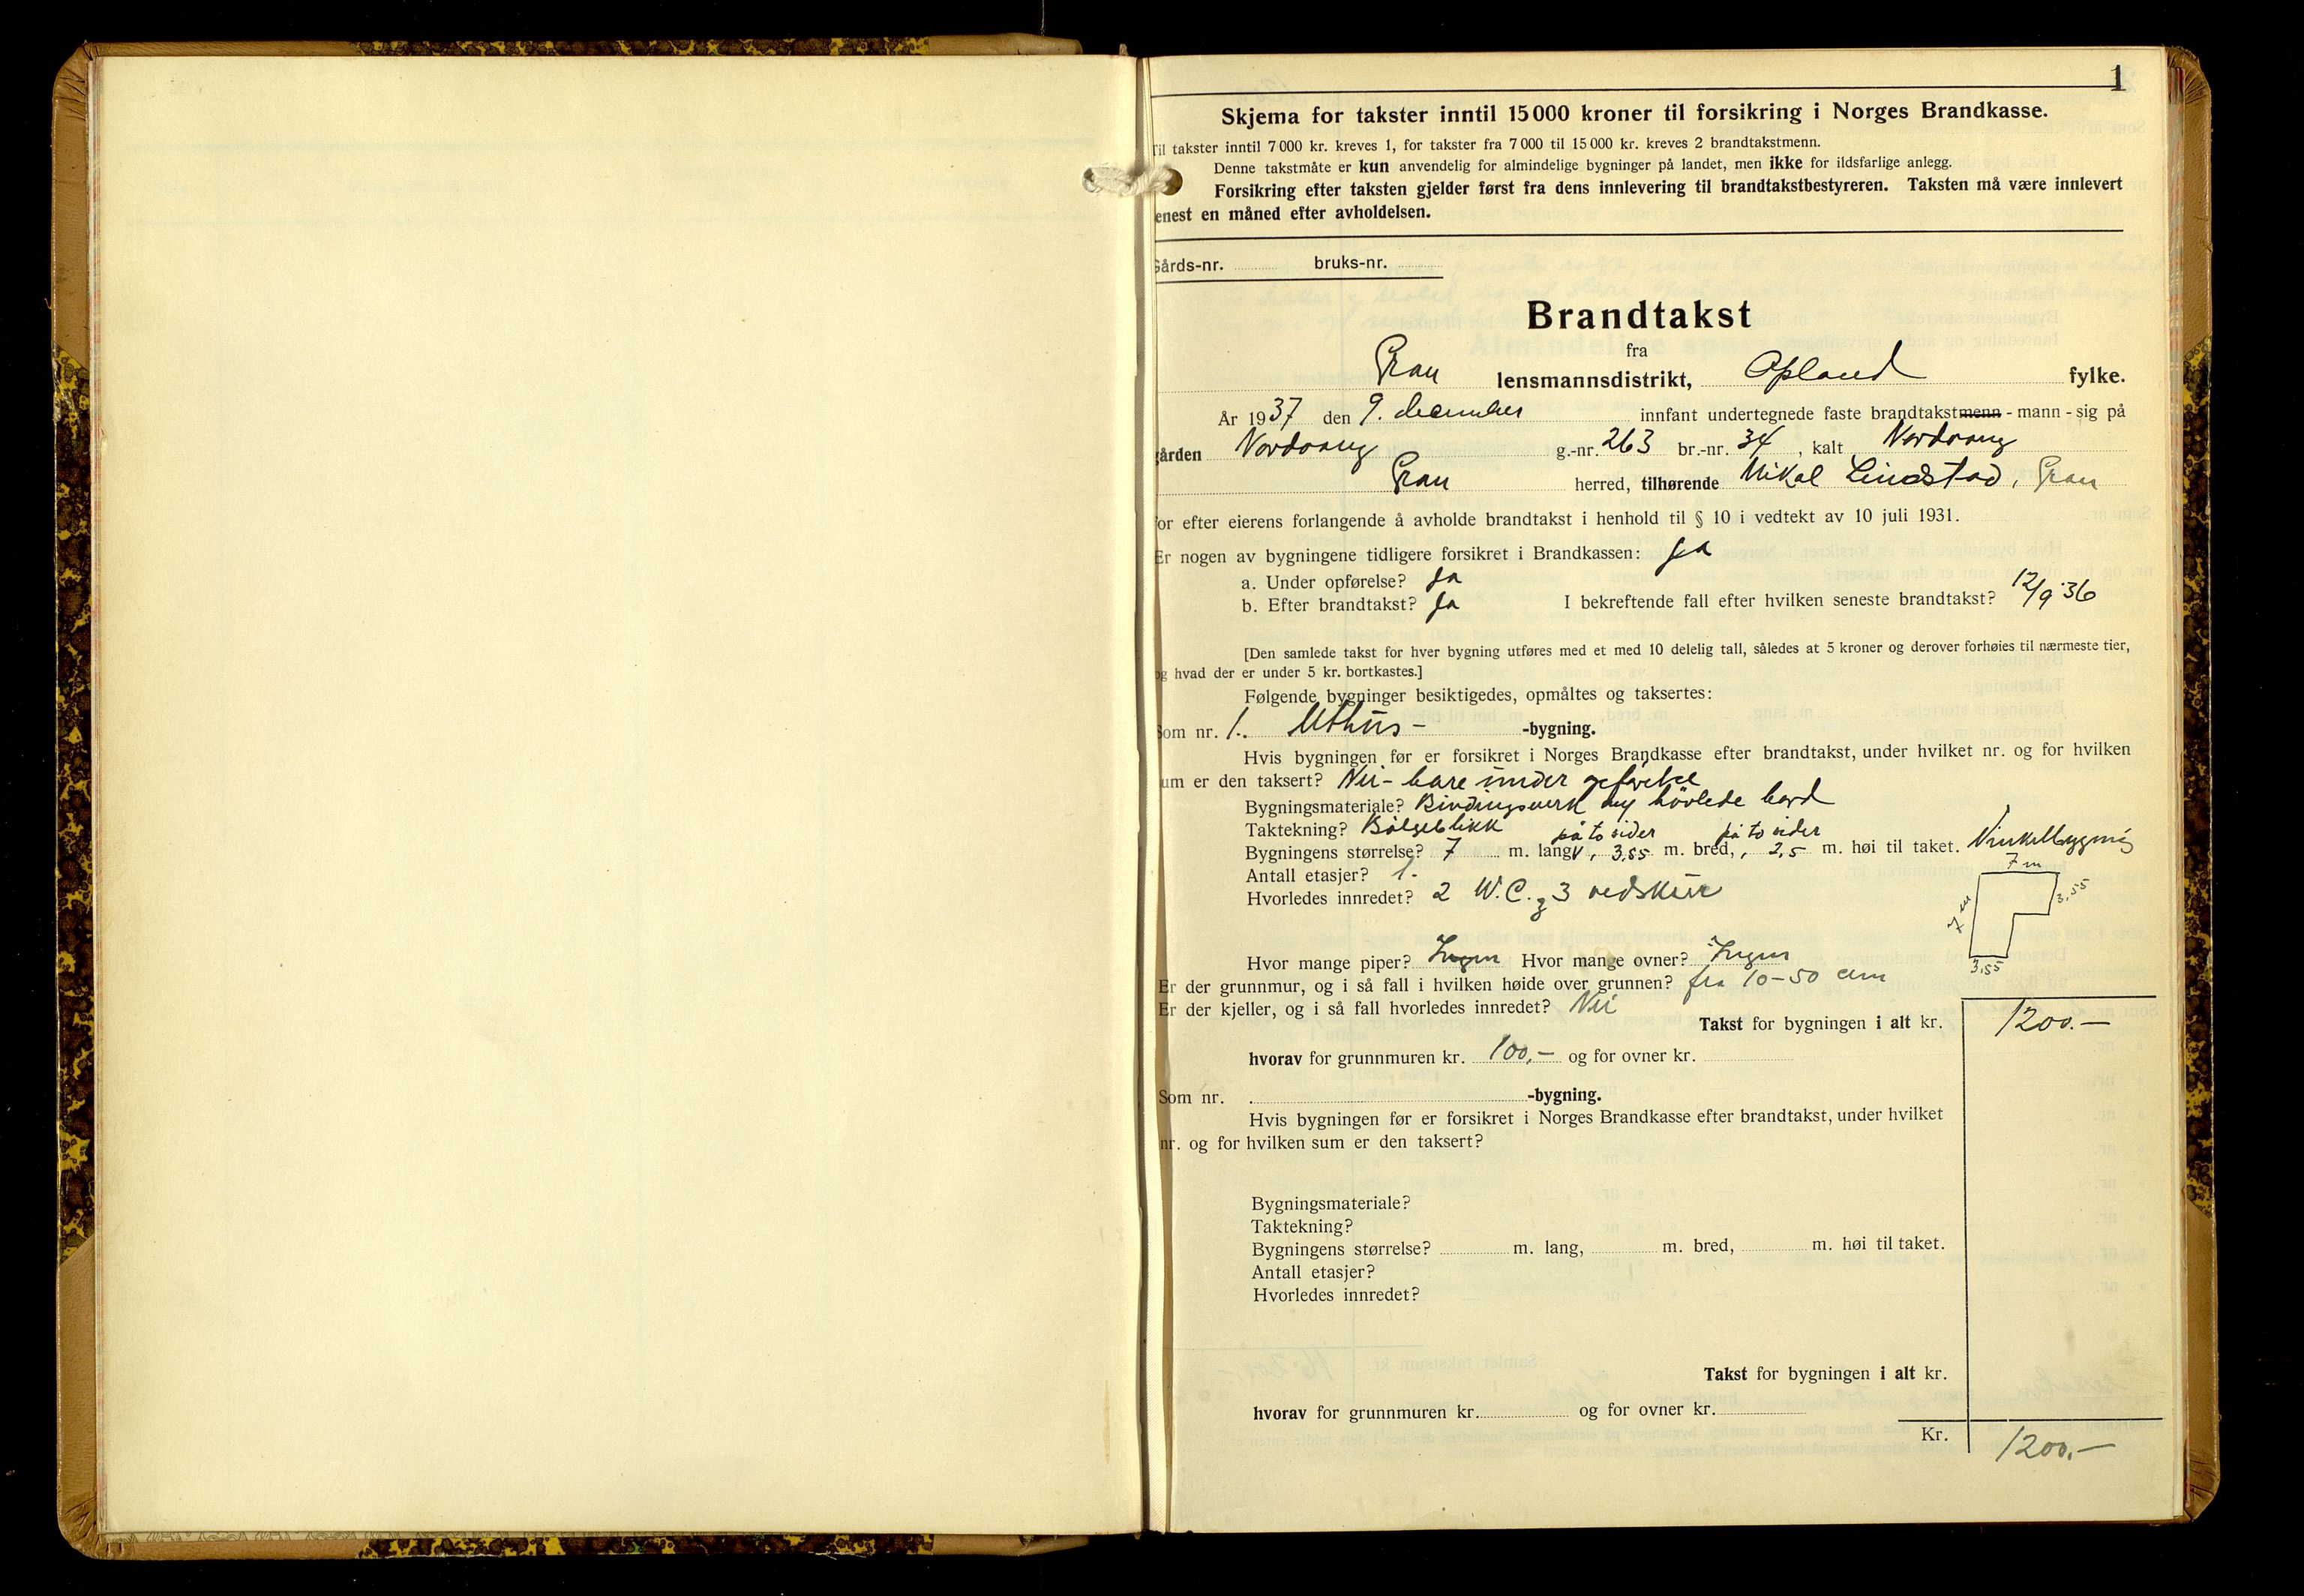 1
Skjema for takster inntil 15 000 kroner til forsikring i Norges Brandkasse.
Til takster inntil 7 000 kr. kreves 1, for takster fra 7 000 til 15 000 kr. kreves 2 brandtakstmenn.
Denne takstmåte er kun anvendelig for almindelige bygninger på landet, men ikke for ildsfarlige anlegg.
Forsikring efter taksten gjelder først fra dens innlevering til brandtakstbestyreren. Taksten må være innlevert
enest en måned efter avholdelsen.
Gårds-nr. bruks-nr.
Brandtakst
fra
Gran lensmannsdistrikt, Opland fylke.
År 1937 den 9. december innfant undertegnede faste brandtakstmenn - mann - sig på
gården Nordvang g.-nr. 263 br.-nr. 34, kalt Nordvang
Gran herred, tilhørende Mikal Lindstad, Gran
for efter eierens forlangende å avholde brandtakst i henhold til § 10 i vedtekt av 10 juli 1931.
Er nogen av bygningene tidligere forsikret i Brandkassen: Ja
a. Under opførelse? Ja
b. Efter brandtakst? Ja I bekreftende fall efter hvilken seneste brandtakst? 12/9 36
[Den samlede takst for hver bygning utføres med et med 10 delelig tall, således at 5 kroner og derover forhøies til nærmeste tier,
og hvad der er under 5 kr. bortkastes.]
Følgende bygninger besiktigedes, opmåltes og taksertes:
Som nr. 1. Uthus- -bygning.
Hvis bygningen før er forsikret i Norges Brandkasse efter brandtakst, under hvilket nr. og for hvilken
sum er den taksert? Nei - bare under opførelse
Bygningsmateriale? Bindingsverk og høvlede bord
Taktekning? Bølgeblikk
på to sider på to sider
Bygningens størrelse? 7 m. lang, 3,55 m. bred, 2,5 m. høi til taket. Vinkelbygning
Antall etasjer? 1.
7 m
3,55
7 m
3,55
Hvorledes innredet? 2 W.C. og 3 vedskur
Hvor mange piper? Ingen Hvor mange ovner? Ingen
Er der grunnmur, og i så fall i hvilken høide over grunnen? fra 10-50 cm
Er der kjeller, og i så fall hvorledes innredet? Nei
Takst for bygningen i alt kr. 1200.-
hvorav for grunnmuren kr. 100,- og for ovner kr.
Som nr. -bygning.
Hvis bygningen før er forsikret i Norges Brandkasse efter brandtakst, under hvilket
nr. og for hvilken sum er den taksert?
Bygningsmateriale?
Taktekning?
Bygningens størrelse? m. lang, m. bred, m. høi til taket.
Antall etasjer?
Hvorledes innredet?
Takst for bygningen i alt kr.
hvorav for grunnmuren kr. og for ovner kr.
Kr. 1200,-